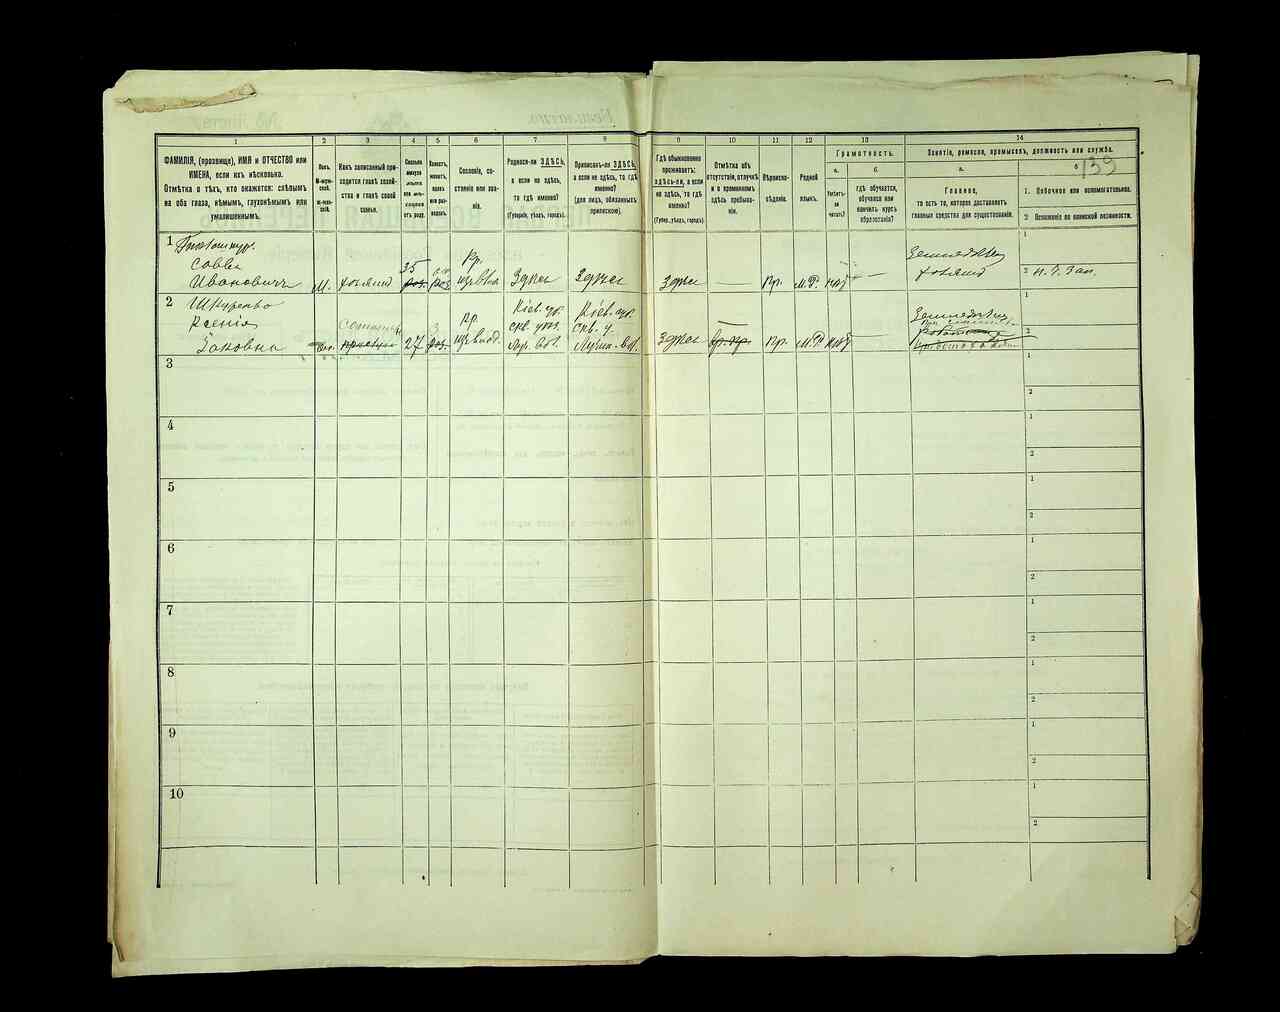 1
2
3
4
5
6
7
8
9
10
11
12
13
14
ФАМИЛІЯ, (прозвище), ИМЯ и ОТЧЕСТВО или
ИМЕНА, если ихъ нѣсколько.
Отмѣтка о тѣхъ, кто окажется: слѣпымъ
на оба глаза, нѣмымъ, глухонѣмымъ или
умалишеннымъ.
Полъ.
М-мужской.
Ж-женскій.
Какъ записанный приходится
главѣ хозяйства
и главѣ своей
семьи.
Сколько
минуло
лѣтъ
или мѣсяцевъ
отъ роду.
Холостъ,
женатъ,
вдовъ
или разведенъ.
Сословіе, состояніе
или званіе.
Родился-ли ЗДѢСЬ,
а если не здѣсь,
то гдѣ именно?
(Губернія, уѣздъ, городъ).
Приписанъ-ли ЗДѢСЬ,
а если не здѣсь, то гдѣ
именно?
(для лицъ, обязанныхъ
припискою).
Гдѣ обыкновенно
проживаетъ:
здѣсь-ли, а если
не здѣсь, то гдѣ
именно?
(Губер., уѣздъ, городъ).
Отмѣтка объ
отсутствіи, отлучкѣ
и о временномъ
здѣсь пребываніи.
Вѣроисповѣданіе.
Родной
языкъ.
Грамотность.
а.
Умѣетъ-ли
читать?
б.
гдѣ обучается,
обучался или
кончилъ курсъ
образованія?
Занятіе, ремесло, промыселъ, должность или служба.
а.
Главное,
то есть то, которое доставляетъ
главныя средства для существованія.
б
139
1. Побочное или вспомогательное.
2 Положеніе по воинской повинности.
1
Савва
Ивановичъ
М.
хозяинъ
35
Кр.
Здѣсь
Здѣсь
Здѣсь
—
Пр.
М.Р.
нѣтъ
—
Земледѣлец
хозяинъ
1
2
2
Ксенія
27
Кр.
Кіев. губ.
Кіев. губ.
Скв. у.
Здѣсь
—
Пр.
М.Р.
нѣтъ
1
2
3
1
2
4
1
2
5
1
2
6
1
2
7
1
2
8
1
2
9
1
2
10
1
2